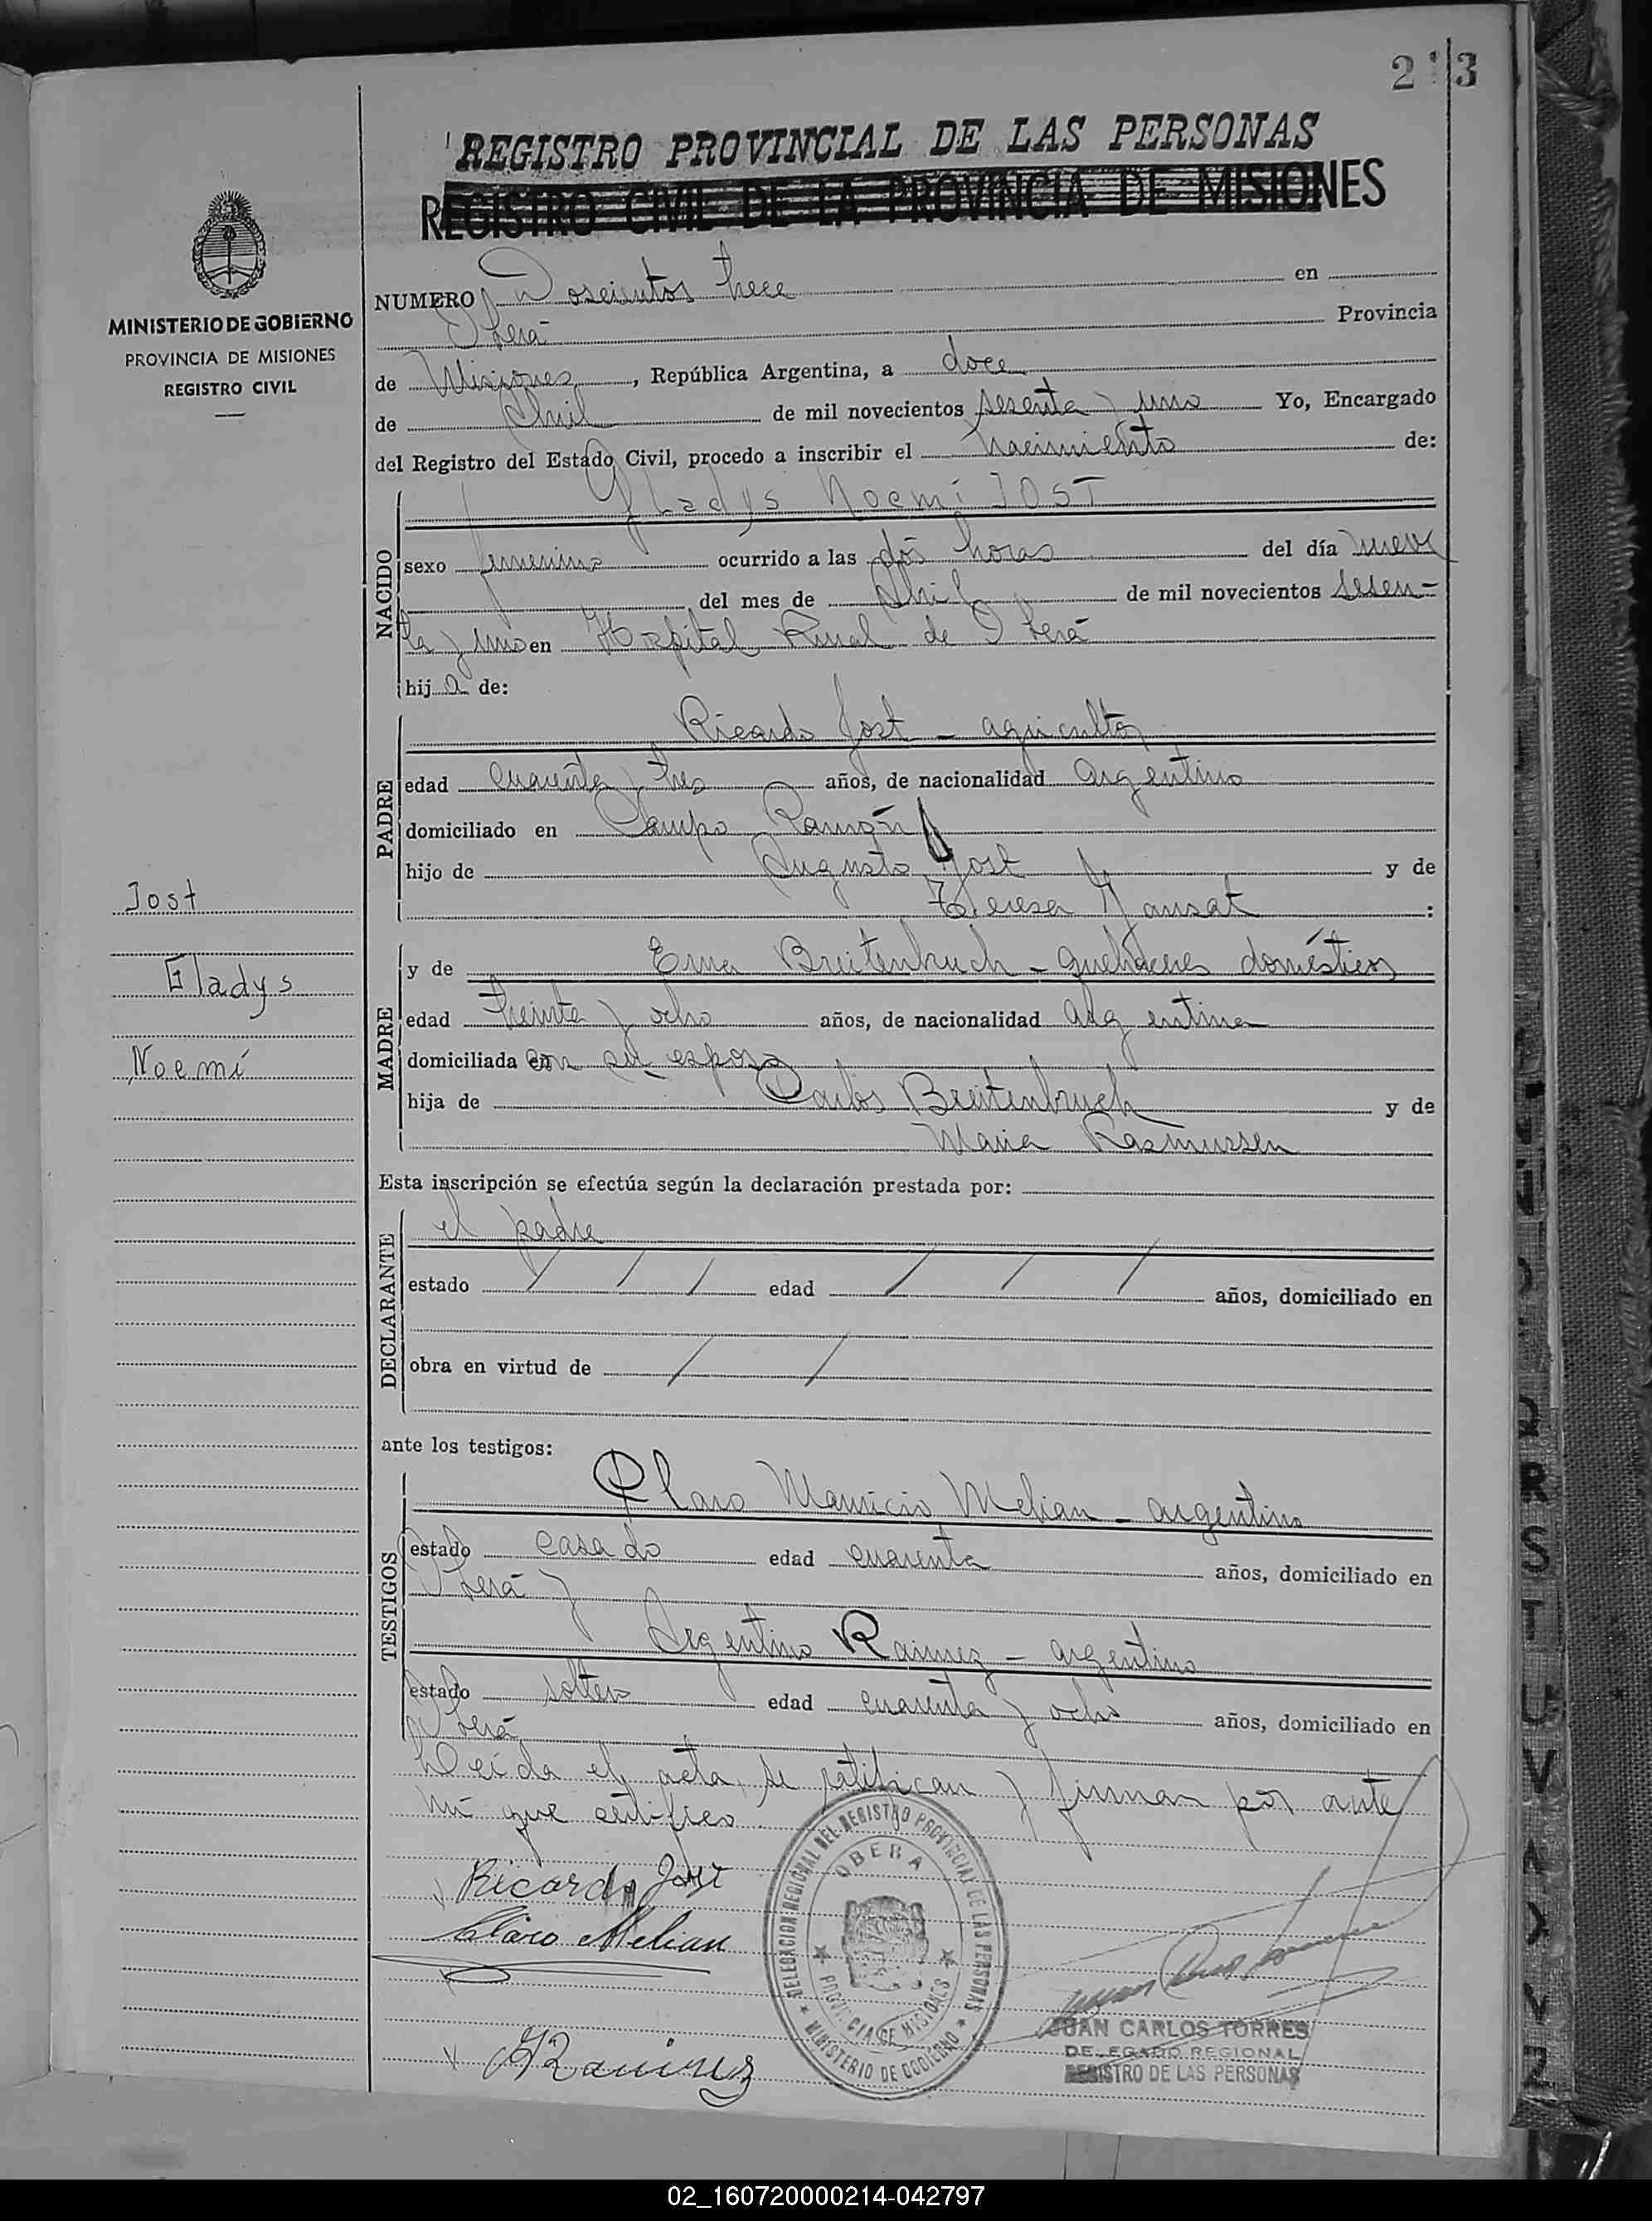 213
REGISTRO PROVINCIAL DE LAS PERSONAS
REGISTRO CIVIL DE LA PROVINCIA DE MISIONES
MINISTERIO DE GOBIERNO
PROVINCIA DE MISIONES
REGISTRO CIVIL
NUMERO Doscientos trece en
Oberá Provincia
de Misiones, República Argentina, a doce
de Abril de mil novecientos sesenta y uno Yo, Encargado
del Registro del Estado Civil, procedo a inscribir el nacimiento de:
NACIDO
Gladys Noemí JOST
sexo femenino ocurrido a las dos horas del día nueve
del mes de Abril de mil novecientos sesen=
ta y uno en Hospital Rural de Oberá
hija de:
PADRE
Ricardo Jost - agricultor
edad cuarenta y tres años, de nacionalidad argentino
domiciliado en Campo Ramón
hijo de Augusto Jost y de
Teresa :
Jost
Gladys
Noemí
MADRE
y de Erna Breitenbruch - quehaceres domésticos
edad treinta y ocho años, de nacionalidad argentina
domiciliada con su esposo
hija de Carlos Breitenbruch y de
Maria Rasmussen
Esta inscripción se efectúa según la declaración prestada por:
DECLARANTE
el padre
estado / / / edad / / / años, domiciliado en
obra en virtud de / /
ante los testigos:
TESTIGOS
Claro Mauricio Melian - argentino
estado casado edad cuarenta años, domiciliado en
Oberá y
Argentino Ramirez - argentino
estado soltero edad cuarenta y ocho años, domiciliado en
Oberá
Leída el acta, se ratifican y firman por ante
mí que certifico.
Ricardo Jost
Claro Melian
ARamirez
DELEGACION REGIONAL DEL REGISTRO PROVINCIAL DE LAS PERSONAS
OBERA
PROVINCIA DE MISIONES
MINISTERIO DE GOBIERNO
JUAN CARLOS TORRES
DELEGADO REGIONAL
REGISTRO DE LAS PERSONAS
R
S
T
U
V
X
Y
Z
02_160720000214-042797